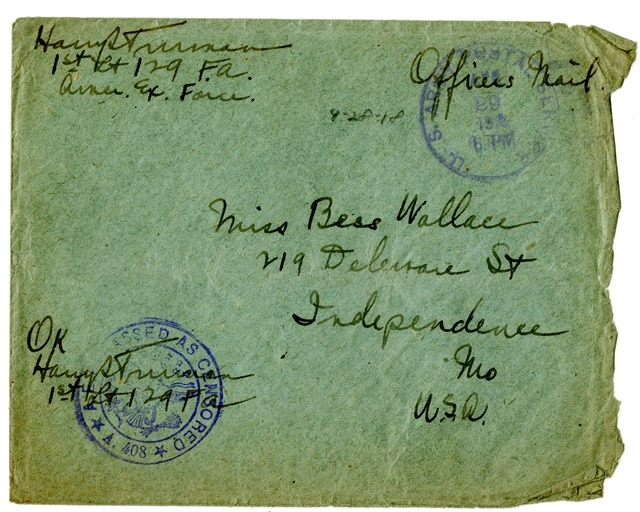 Harry S Truman
1st Lt 129 F.A.
Amer. Ex. Force.
Officers Mail.
4-28-18
U. S. AR POSTAL SERV
29
6 PM
Miss Bess Wallace
219 Deleware St
Independence
Mo
U.S.A.
OK
Harry S Truman
1st Lt 129 FA
PASSED AS CENSORED
A. 408